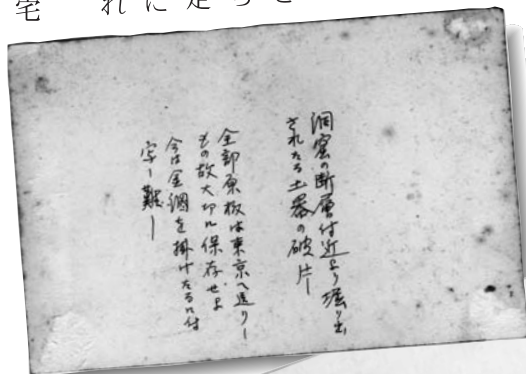 に
れ
宅
洞窟の断層付近より堀り出
されたる土器の破片
全部原板は東京へ送りし
もの故大切に保存せよ
今は金網を掛けたるに付
写し難し